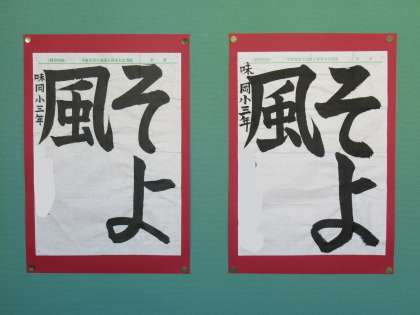 そよ
風
味岡小三年
そよ
風
味岡小三年